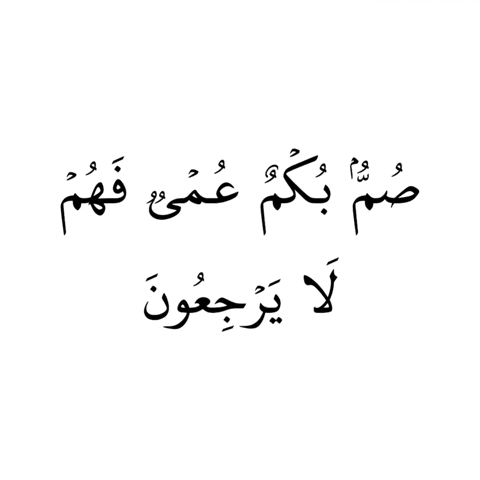 صُمُّۢ بُكۡمٌ عُمۡىٞ فَهُمۡ
لَا يَرۡجِعُونَ